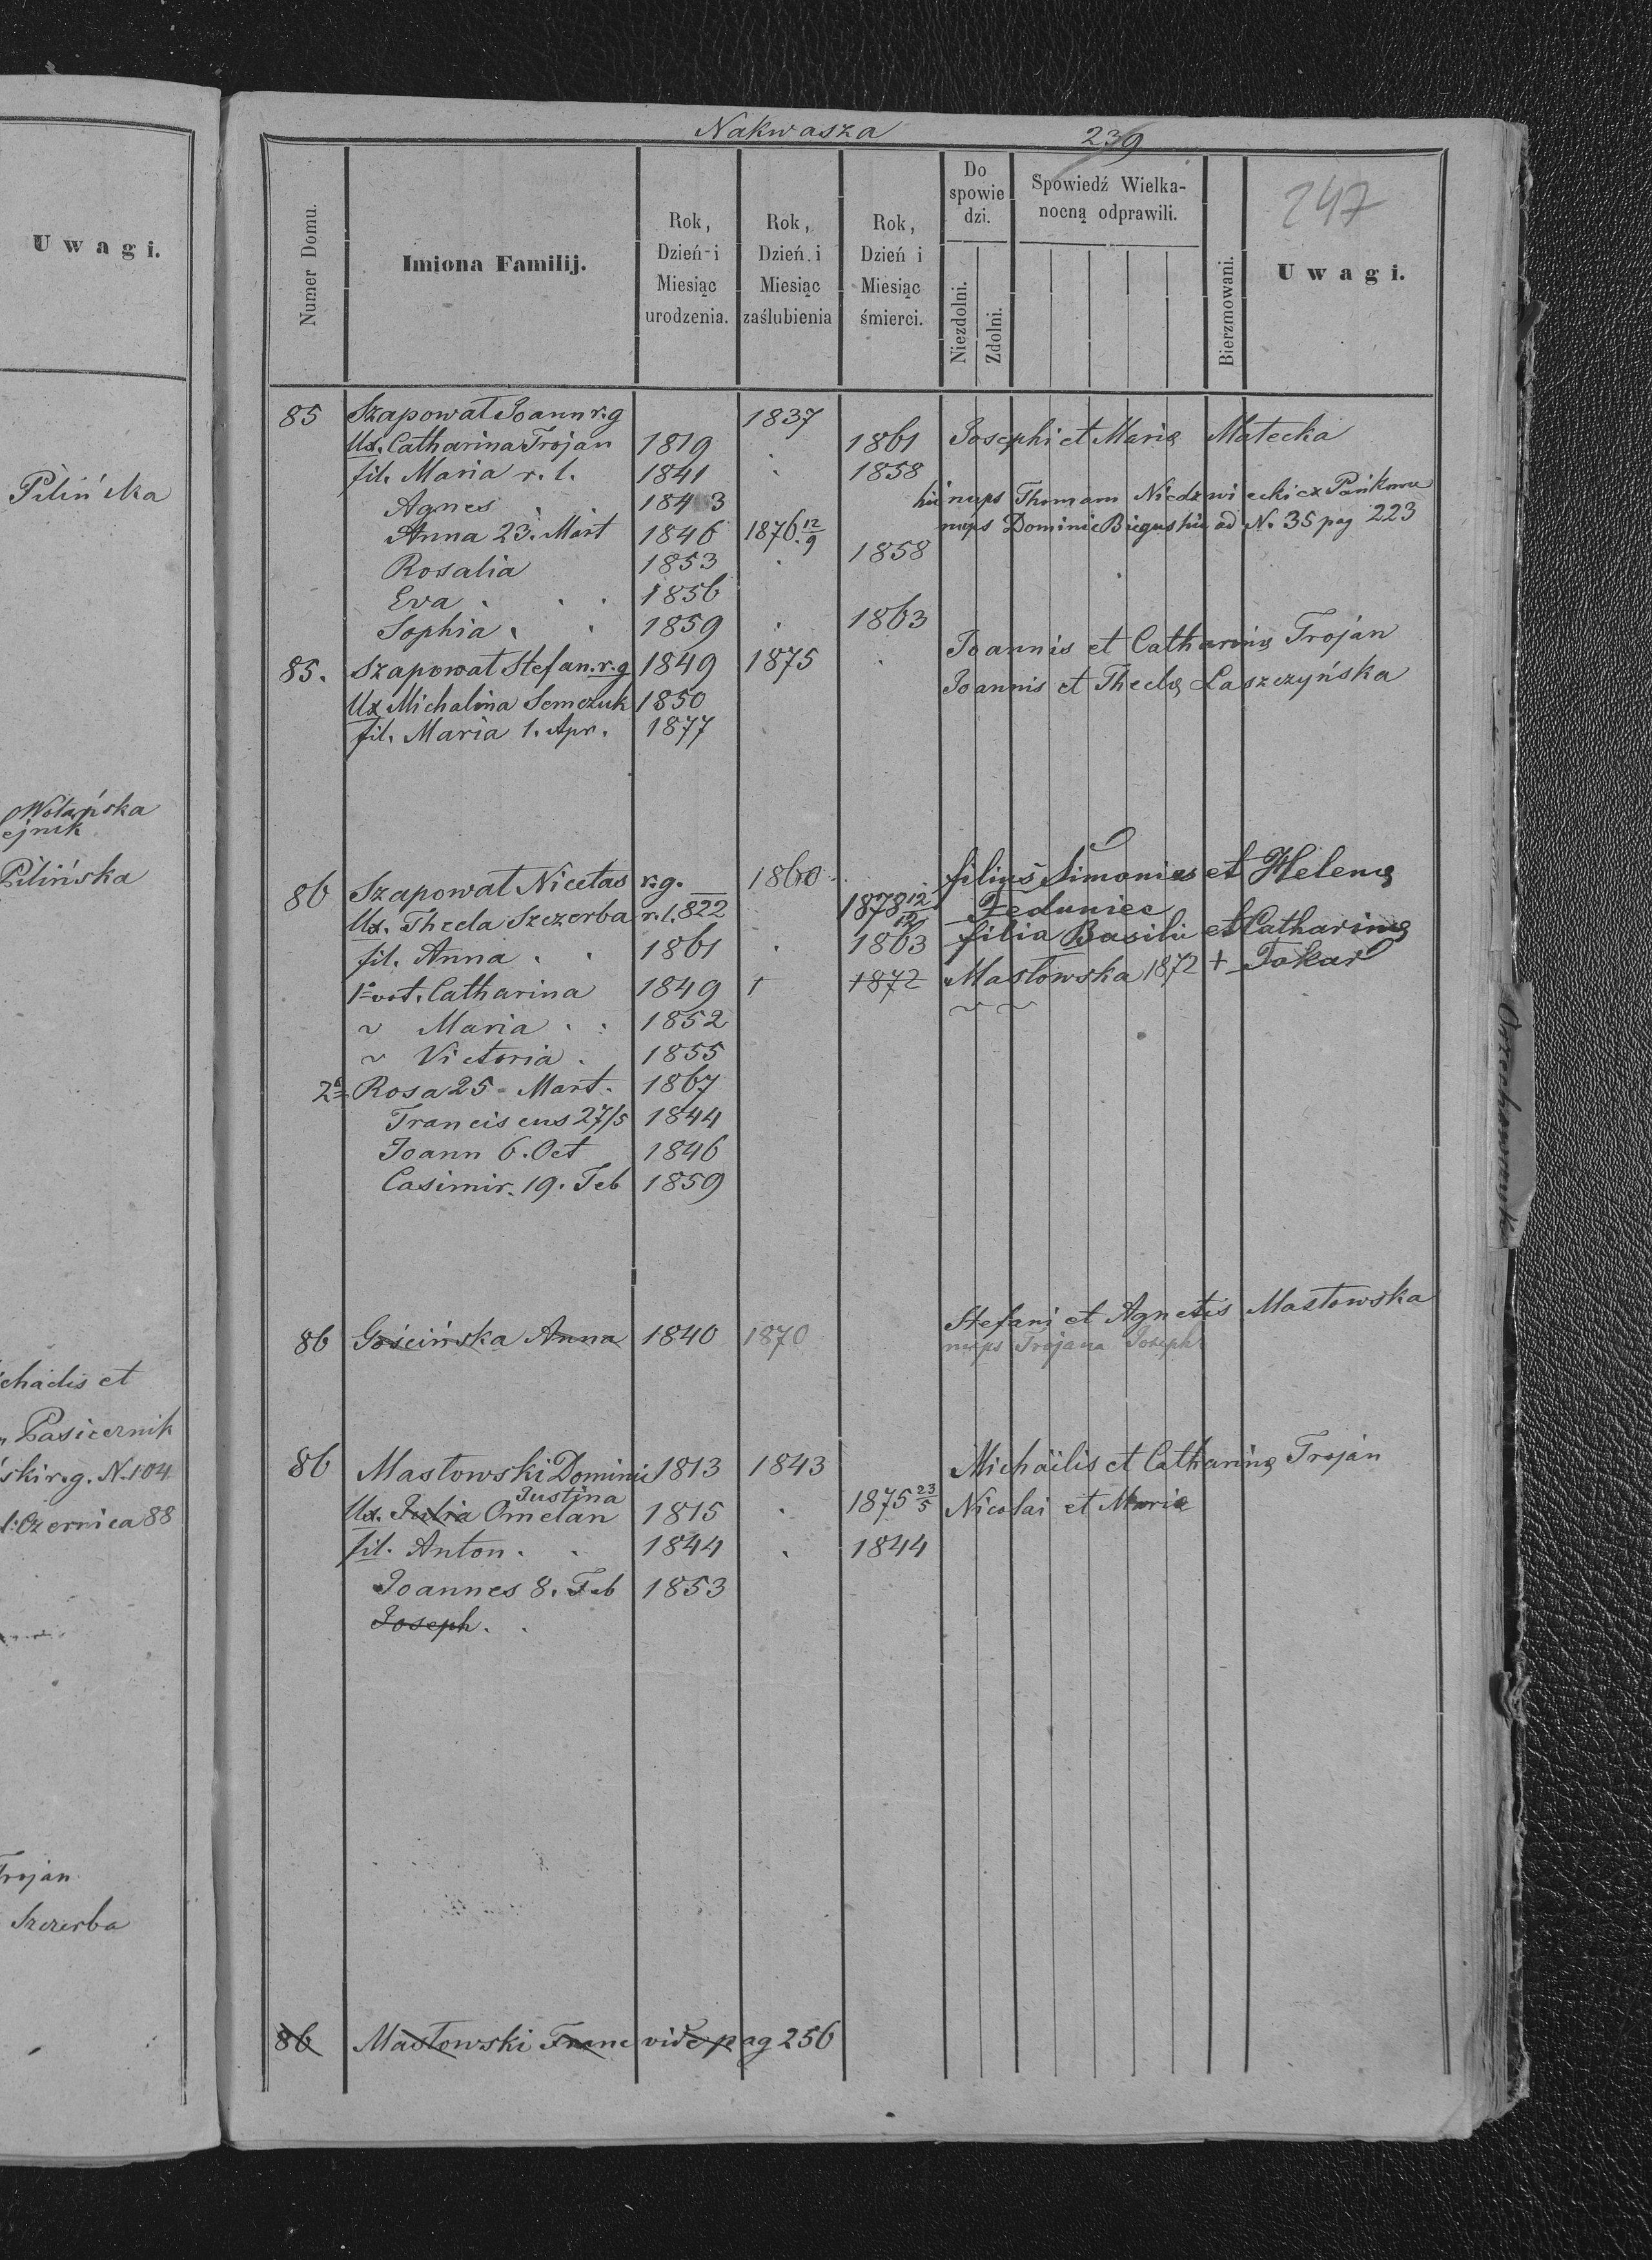 Uwagi.
Pilińska
Wolańska
ejnik
Pilińska
chaelis et
Pasiecznik
ski r. g. N. 104
Czernica 88
Trojan
Szczerba
Nakwasza 239
247
Numer Domu. Imiona Familij. Rok, Dzień i Miesiąc urodzenia. Rok, Dzień i Miesiąc zaślubienia Rok, Dzień i Miesiąc śmierci. Do spowiedzi. Niezdolni. Zdolni. Spowiedź Wielkanocną odprawili. Bierzmowani. Uwagi.
85 Szapował Joann r. g 1837
Ux. Catharina Trojan 1819 1861 Josephi et Marię Małecka
fil. Maria r. l. 1841 1858
Agnes 1843 nups Thomam Niedzwiecki ex Pańkowa
Anna 23. Mart 1846 1876 12/9 nups Dominic Biegus hic ad N. 35 pag 223
Rosalia 1853 1858
Eva 1856
Sophia 1859 1863
85. Szapowat Stefan. r. g 1849 1875 Joannis et Catharinę Trojan
Ux Michalina Semczuk 1850 Joannis et Theclę Łaszczyńska
fil. Maria 1. Apr. 1877
86 Szapowat Nicetas r. g. 1860 filius Simonies et Helenę
Ux. Thecla Szczerba r. l. 822 1878 12/12 Feduniec
fil. Anna 1861 1863 filia Basilii et Catharinę
1° vot. Catharina 1849 † +872 Masłowska 1872 + Tokar
~ Maria 1852
~ Victoria 1855
2° Rosa 25 Mart. 1867
Franciscus 27/5 1844
Joann 6. Oct 1846
Casimir. 19. Feb 1859
86 Gościńska Anna 1840 1870 Stefani et Agnetis Masłowska
nups Trojana Joseph
86 Masłowski Dominic 1813 1843 Michäilis et Catharinę Trojan
Justina
Ux. Julia Omelan 1815 1875 23/5 Nicolai et Maria
fil. Anton. 1844 1844
Joannes 8. Feb 1853
Joseph.
86 Masłowski Franc vide pag 256
Orzechowska